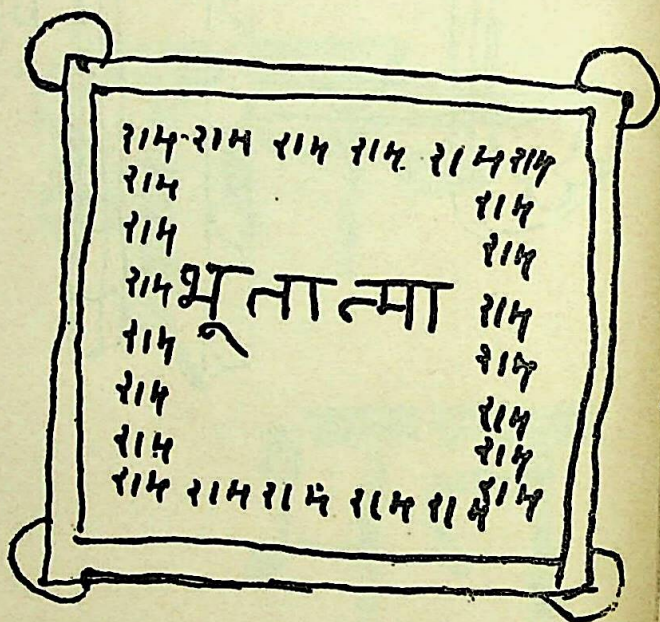 राम राम राम राम राम राम
राम राम
राम राम
राम भूतात्मा राम
राम राम
राम राम
राम राम
राम राम राम राम राम राम